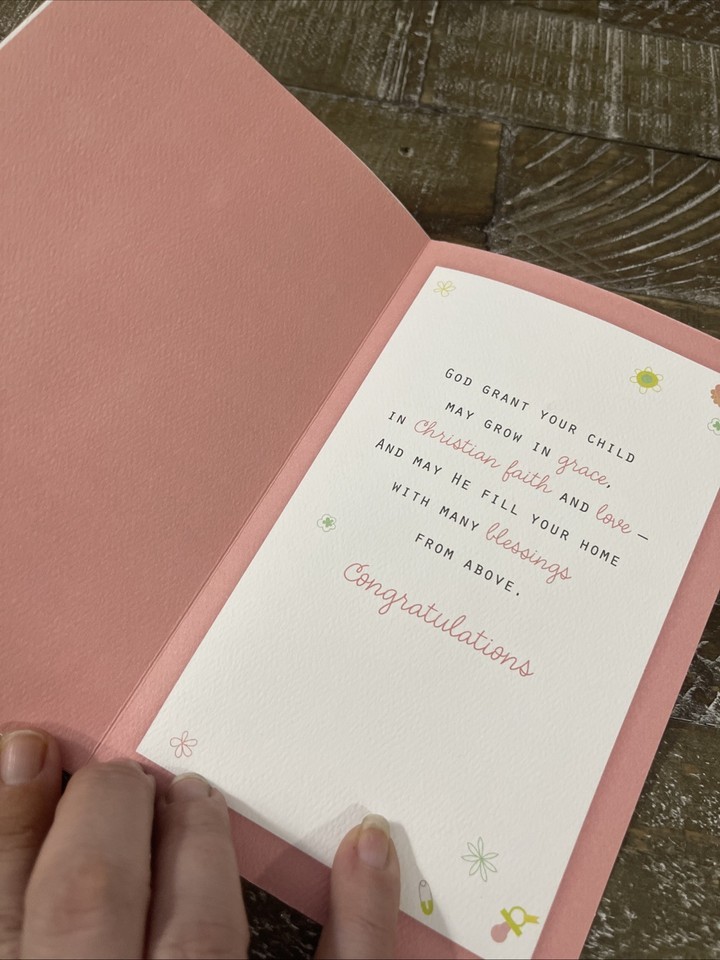 GOD GRANT YOUR CHILD
MAY GROW IN grace,
IN Christian faith AND love –
AND MAY HE FILL YOUR HOME
WITH MANY blessings
FROM ABOVE.
Congratulations